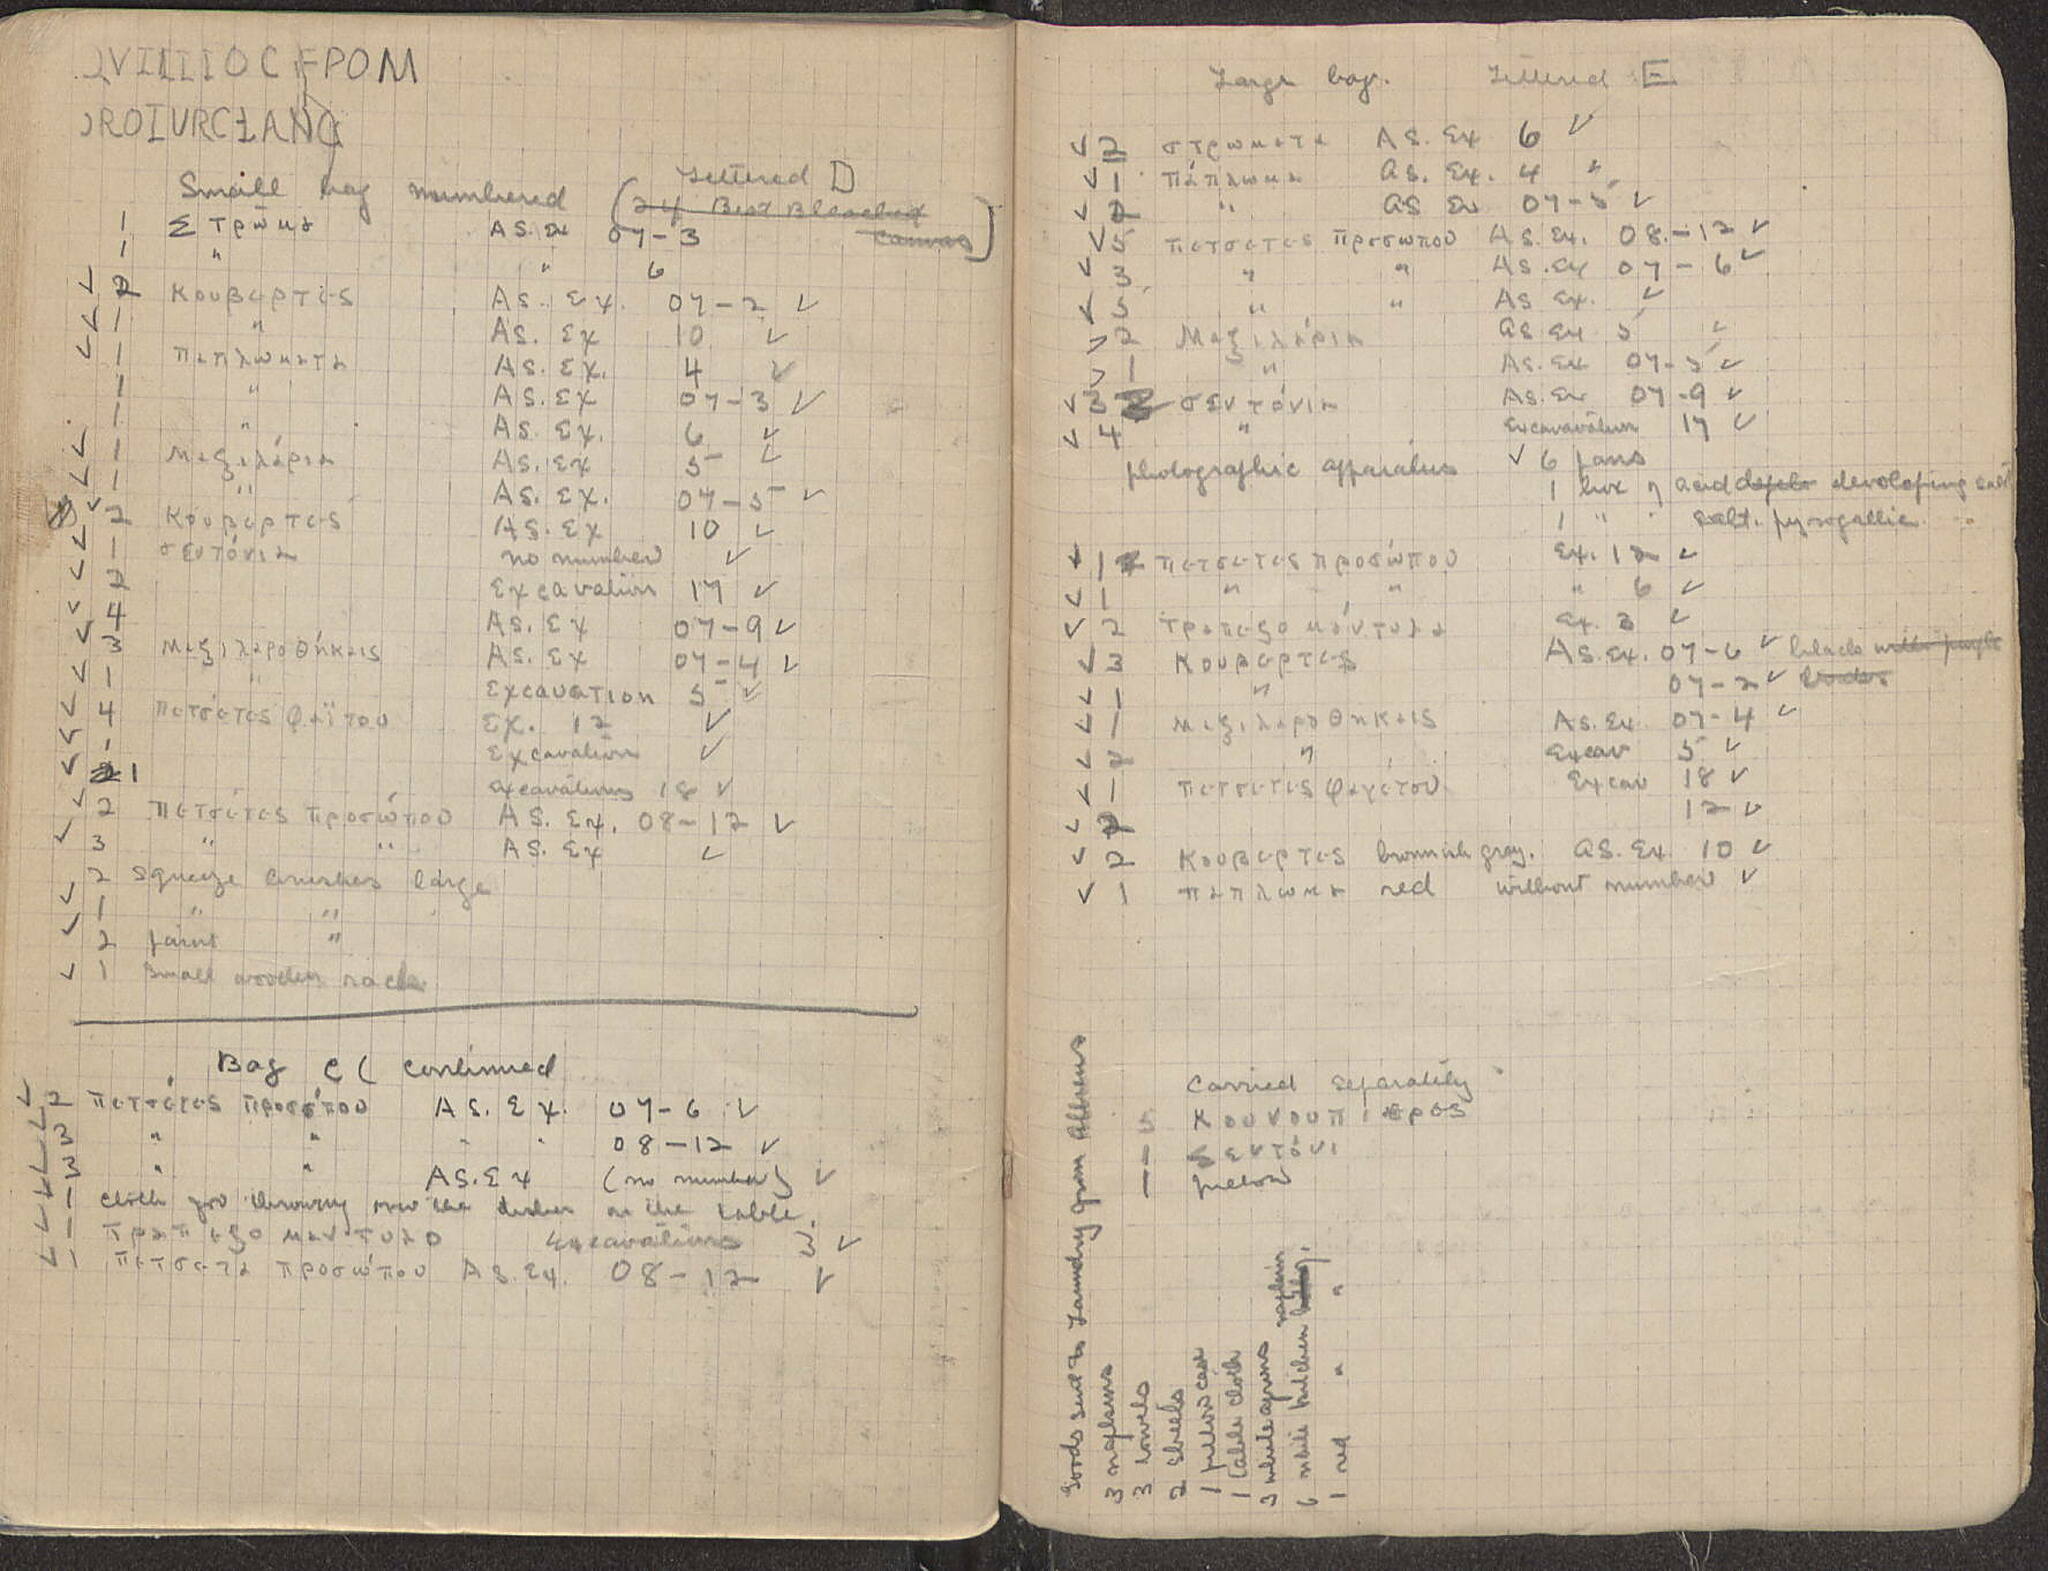 QVIIIIOC FPOM
ROIVRCIANO
Small bag numbered (24 Best Bleached Canvas) Lettered D
1 Στρῶμα AS. Ex 07-3
1 " " 6
✓ 2 Κουβερτες AS. Ex. 07-2 ✓
✓ 1 " AS. Ex 10 ✓
✓ 1 παπλωματα AS. Ex. 4 ✓
1 " AS. Ex 07-3 ✓
1 " AS. Ex. 6 ✓
✓ 1 Μαξιλάρια AS. Ex 5 ✓
✓ 1 " AS. Ex. 07-5 ✓
✓ 2 Κουβερτες AS. Ex 10 ✓
✓ 1 σεντόνια no number ✓
✓ 2 Excavation 17 ✓
✓ 4 AS. Ex 07-9 ✓
✓ 3 Μαξιλαροθήκαις AS. Ex 07-4 ✓
✓ 1 " Excavation 5 ✓
✓ 4 πετσέτες φαΐτου Ex. 12 ✓
✓ 1 Excavation ✓
✓ 1 Excavations 18 ✓
✓ 2 πετσέτες προσώπου AS. Ex. 08-12 ✓
✓ 3 " " AS. Ex ✓
2 Squeeze brushes large
✓ 1 " "
✓ 2 paint "
✓ 1 Small wooden rack
Bag C ( continued
✓ 2 πετσέτες προσώπου AS. Ex. 07-6 ✓
✓ 3 " " " " 08-12 ✓
✓ 3 " " AS. Ex (no number) ✓
✓ 1 cloth for throwing over the dishes on the table.
✓ 1 τραπεζομαντυλο Excavations 3 ✓
✓ 1 πετσετα προσώπου AS. Ex. 08-12 ✓
Large bag. Lettered E
✓ 2 στρωματα AS. Ex 6 ✓
✓ 1 πάπλωμα AS. Ex. 4 "
✓ 2 " AS Ex 07-5 ✓
✓ 5 πετσετες προσωπου AS. Ex. 08-12 ✓
✓ 3 " " AS. Ex 07-6 ✓
✓ 5 " " AS Ex. ✓
✓ 2 Μαξιλάρια AS Ex 5 ✓
✓ 1 " AS. Ex 07-5 ✓
✓ 3 σεντόνια AS. Ex 07-9 ✓
✓ 4 " Excavation 17 ✓
photographic apparatus ✓ 6 pans
1 box of acid developing salt
1 " " salt. pyrogallic
✓ 1 πετσετες προσώπου Ex. 12 ✓
✓ 1 " " " 6 ✓
✓ 2 τραπεζομάντυλα Ex. 3 ✓
✓ 3 Κουβερτες AS. Ex. 07-6 ✓ black with purple
✓ 1 " 07-2 ✓ border
✓ 1 μαξιλαροθήκαις AS. Ex 07-4 ✓
✓ 2 " Excav 5 ✓
✓ 1 πετσετες φαγέτου Excav 18 ✓
✓ 2 12 ✓
✓ 2 Κουβερτες brownish gray. AS. Ex 10 ✓
✓ 1 παπλωμα red without number ✓
Carried separately
5 Κουνουπιερες
1 Σεντόνι
1 pillow
Goods sent to Laundry from Athens
3 napkins
3 towels
2 sheets
1 pillow case
1 table cloth
3 white aprons
6 white kitchen napkin
1 red " "